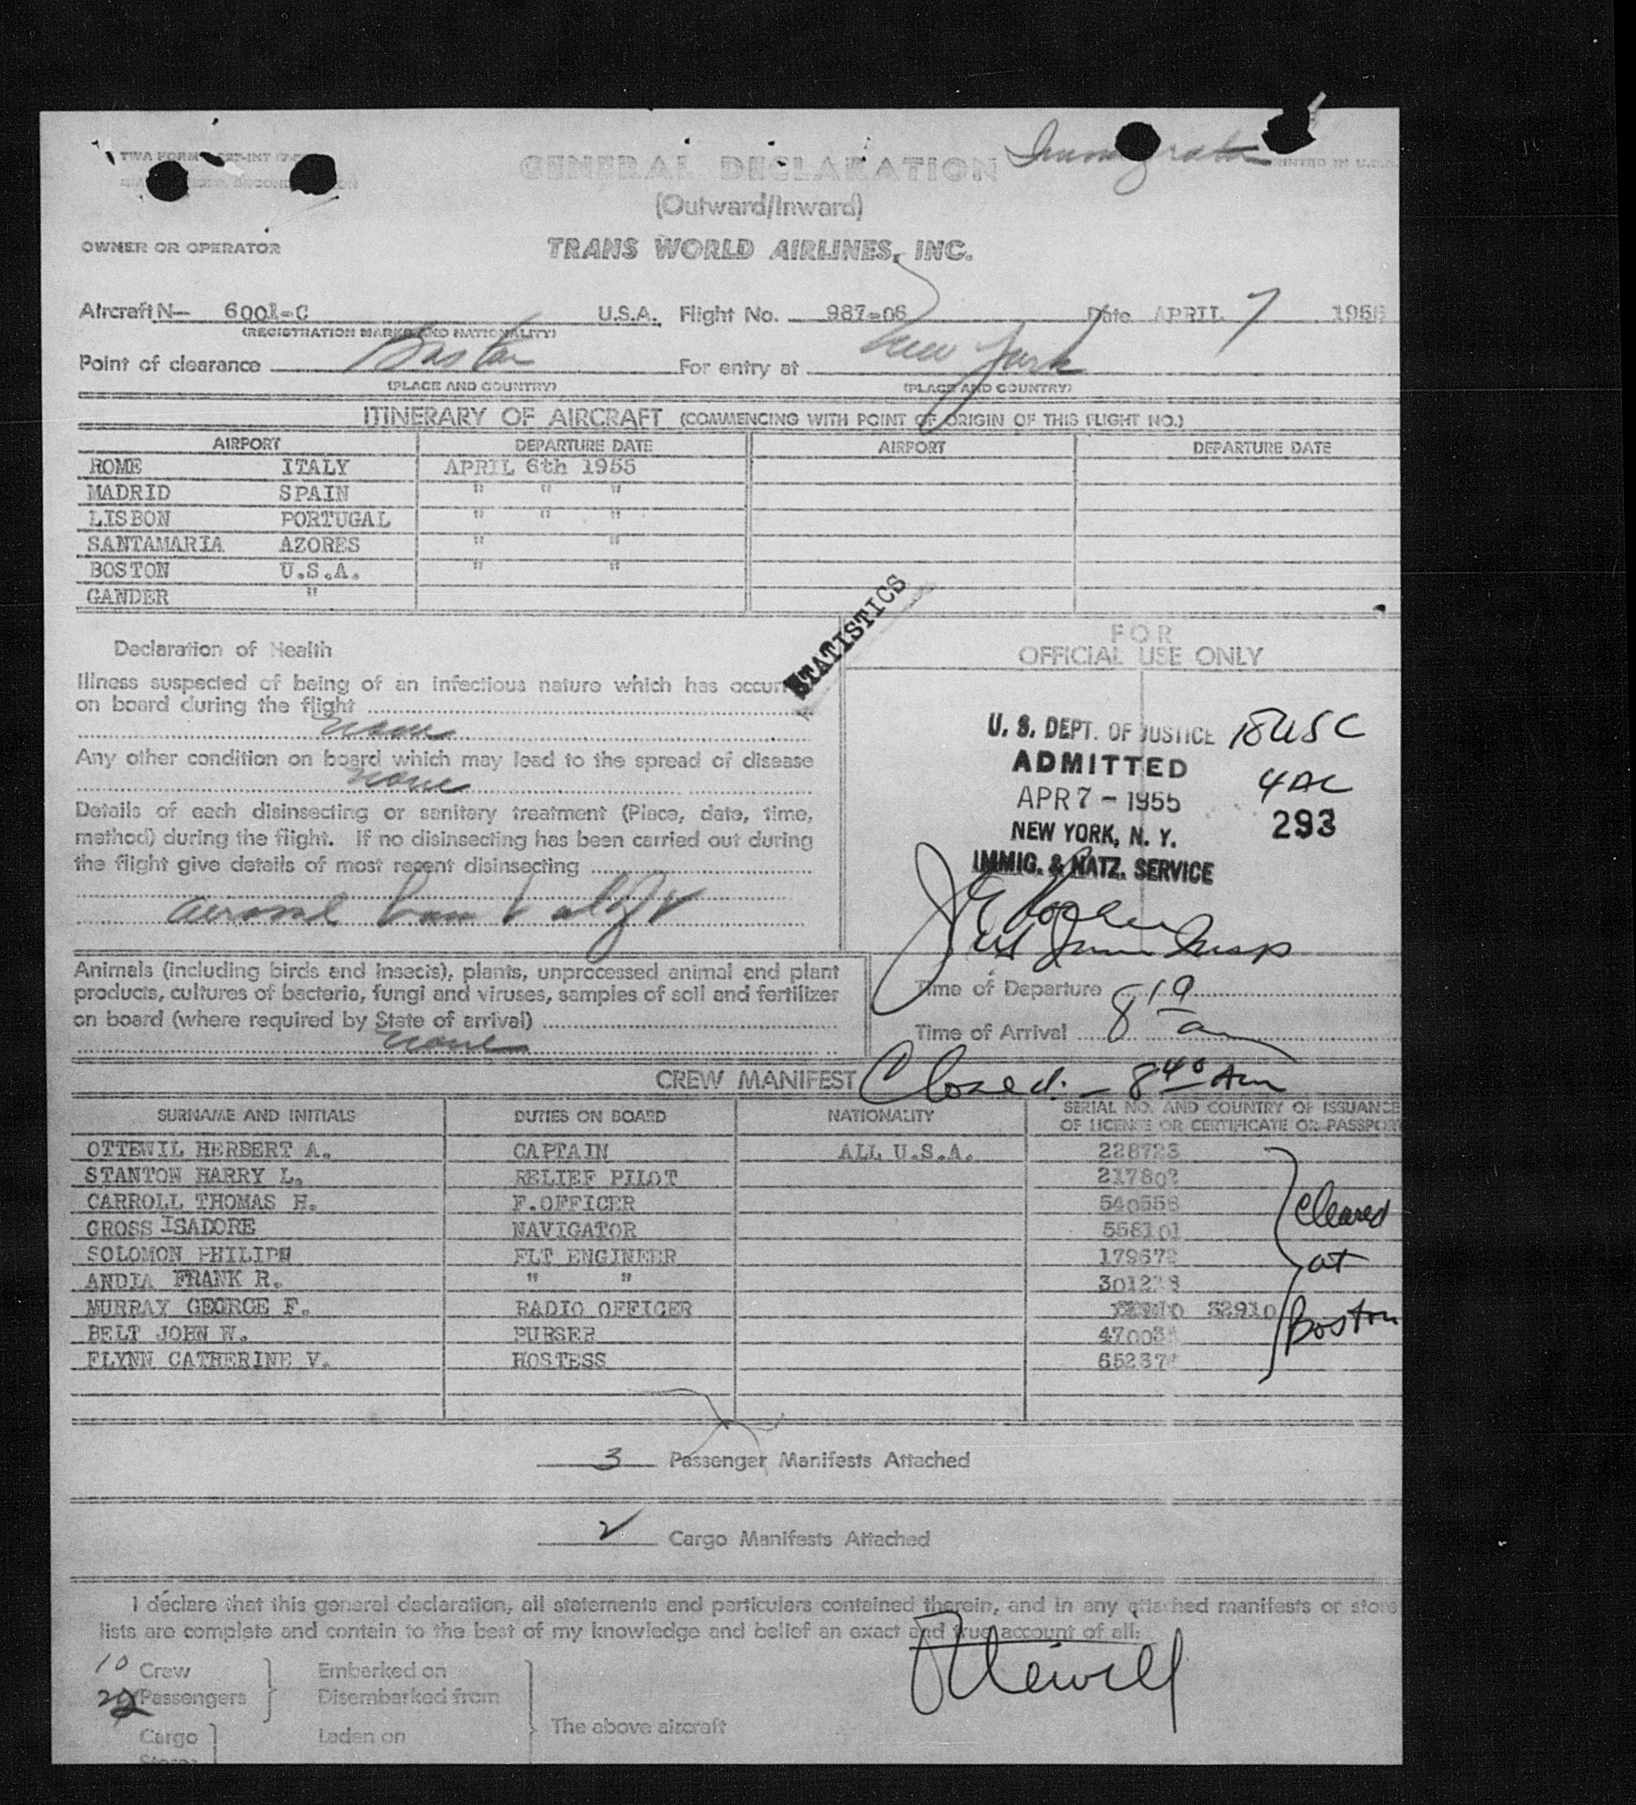 TWA FORM
GENERAL DECLARATION
Immigration
PRINTED IN U.S.A.
(Outward/Inward)
OWNER OR OPERATOR
TRANS WORLD AIRLINES, INC.
Aircraft N— 6001-C U.S.A. Flight No. 987-06 Date APRIL 7 1955
(REGISTRATION MARKS AND NATIONALITY)
Point of clearance Boston For entry at New York
(PLACE AND COUNTRY) (PLACE AND COUNTRY)
ITINERARY OF AIRCRAFT (COMMENCING WITH POINT OF ORIGIN OF THIS FLIGHT NO.)
AIRPORT DEPARTURE DATE AIRPORT DEPARTURE DATE
ROME ITALY APRIL 6th 1955
MADRID SPAIN " " "
LISBON PORTUGAL " " "
SANTAMARIA AZORES " "
BOSTON U.S.A. " "
GANDER "
STATISTICS
Declaration of Health
Illness suspected of being of an infectious nature which has occurred
on board during the flight
none
Any other condition on board which may lead to the spread of disease
none
Details of each disinsecting or sanitary treatment (Place, date, time,
method) during the flight. If no disinsecting has been carried out during
the flight give details of most recent disinsecting
FOR
OFFICIAL USE ONLY
U. S. DEPT. OF JUSTICE 18 USC
ADMITTED
4 AC
APR 7 - 1955
293
NEW YORK, N. Y.
IMMIG. & NATZ. SERVICE
Animals (including birds and insects), plants, unprocessed animal and plant
products, cultures of bacteria, fungi and viruses, samples of soil and fertilizer
on board (where required by State of arrival)
none
Time of Departure
Time of Arrival 8 19 am
CREW MANIFEST Closed: - 8 40 Am
SURNAME AND INITIALS DUTIES ON BOARD NATIONALITY SERIAL NO. AND COUNTRY OF ISSUANCE
OF LICENSE OR CERTIFICATE OR PASSPORT
OTTEWIL HERBERT A. CAPTAIN ALL U.S.A. 228723
STANTON HARRY L. RELIEF PILOT
CARROLL THOMAS H. F.OFFICER 540558
GROSS ISADORE NAVIGATOR 558101
SOLOMON PHILIP FLT ENGINEER 179672
ANDIA FRANK R. " "
MURRAY GEORGE F. RADIO OFFICER 32910
BELT JOHN W. PURSER
FLYNN CATHERINE V. HOSTESS
Cleared
at
Boston
3 Passenger Manifests Attached
2 Cargo Manifests Attached
I declare that this general declaration, all statements and particulars contained therein, and in any attached manifests or store
lists are complete and contain to the best of my knowledge and belief an exact and true account of all:
Ottewill
10 Crew Embarked on
Passengers Disembarked from
The above aircraft
Cargo Laden on
Stores